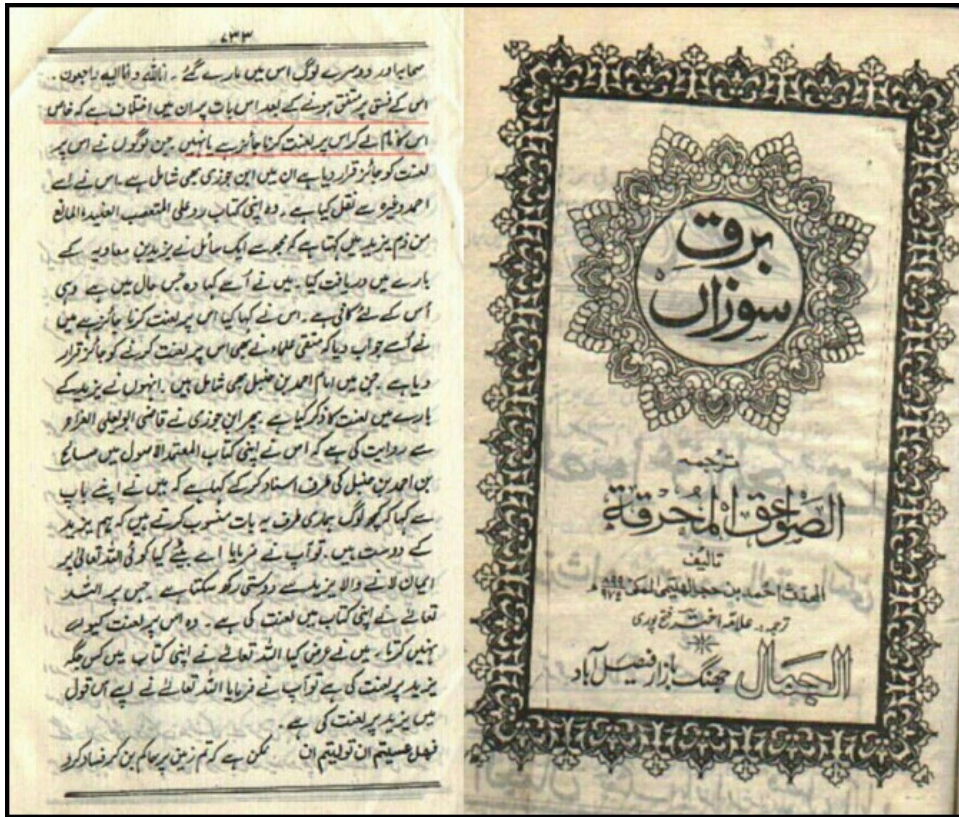 ۷۳۳
صحابہ اور دوسرے لوگ اس میں مارے گئے ۔ اناللہ و انا الیہ راجعون ..
اس کے فسق پر متفق ہونے کے بعد اس بات پر ان میں اختلاف ہے کہ خاص
اس کا نام لے کر اس پر لعنت کرنا جائز ہے یا نہیں ۔ جن لوگوں نے اس پر
لعنت کو جائز قرار دیا ہے ان میں ابن جوزی بھی شامل ہے ۔ اس نے اسے
احمد وغیرہ سے نقل کیا ہے ۔ وہ اپنی کتاب رد علی المتعصب العنید المانع
من ذم یزید میں کہتا ہے کہ مجھ سے ایک سائل نے یزید بن معاویہ کے
بارے میں دریافت کیا ۔ میں نے اُسے کہا وہ جس حال میں ہے وہی
اُس کے لئے کافی ہے ۔ اس نے کہا کیا اس پر لعنت کرنا جائز ہے میں
نے اُسے جواب دیا کہ متقی علماء نے بھی اس پر لعنت کرنے کو جائز قرار
دیا ہے ۔ جن میں امام احمد بن حنبل بھی شامل ہیں ۔ انہوں نے یزید کے
بارے میں لعنت کا ذکر کیا ہے ۔ پھر ابن جوزی نے قاضی ابو یعلی الفراء
سے روایت کی ہے کہ اس نے اپنی کتاب المعتمد الاصول میں صالح
بن احمد بن حنبل کی طرف اسناد کر کے کہا ہے کہ میں نے اپنے باپ
سے کہا کہ کچھ لوگ ہماری طرف یہ بات منسوب کرتے ہیں کہ ہم یزید
کے دوست ہیں ۔ تو آپ نے فرمایا اے بیٹے کیا کوئی اللہ تعالیٰ پر
ایمان لانے والا یزید سے دوستی رکھ سکتا ہے ۔ جس پر اللہ
تعالے نے اپنی کتاب میں لعنت کی ہے ۔ وہ اس پر لعنت کیوں
نہیں کرتا ۔ میں نے عرض کیا اللہ تعالے نے اپنی کتاب میں کس جگہ
یزید پر لعنت کی ہے تو آپ نے فرمایا اللہ تعالے نے اپنے اس قول
میں یزید پر لعنت کی ہے ۔
فهل عسیتم ان تولیتم ان ممکن ہے کہ تم زمین پر حاکم بن کر فساد کرو
برقِ
سوزاں
ترجمہ
الصَّوَاعِقُ الْمُحْرِقَة
تالیف
المحدث احمد بن حجر الہیتمی المکی
ترجمہ: علامہ اختر فتح پوری
الجمال جھنگ بازار فیصل آباد